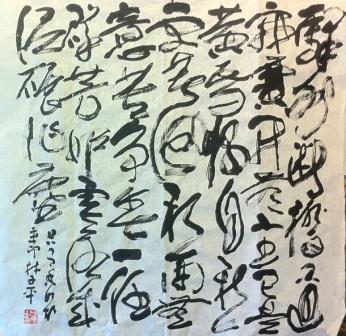 驛外斷橋邊
寂寞開無主已是
黃昏獨自愁
更著風和雨無
意苦爭春一任
群芳妒零落成
泥碾作塵
只有香如故
辛卯